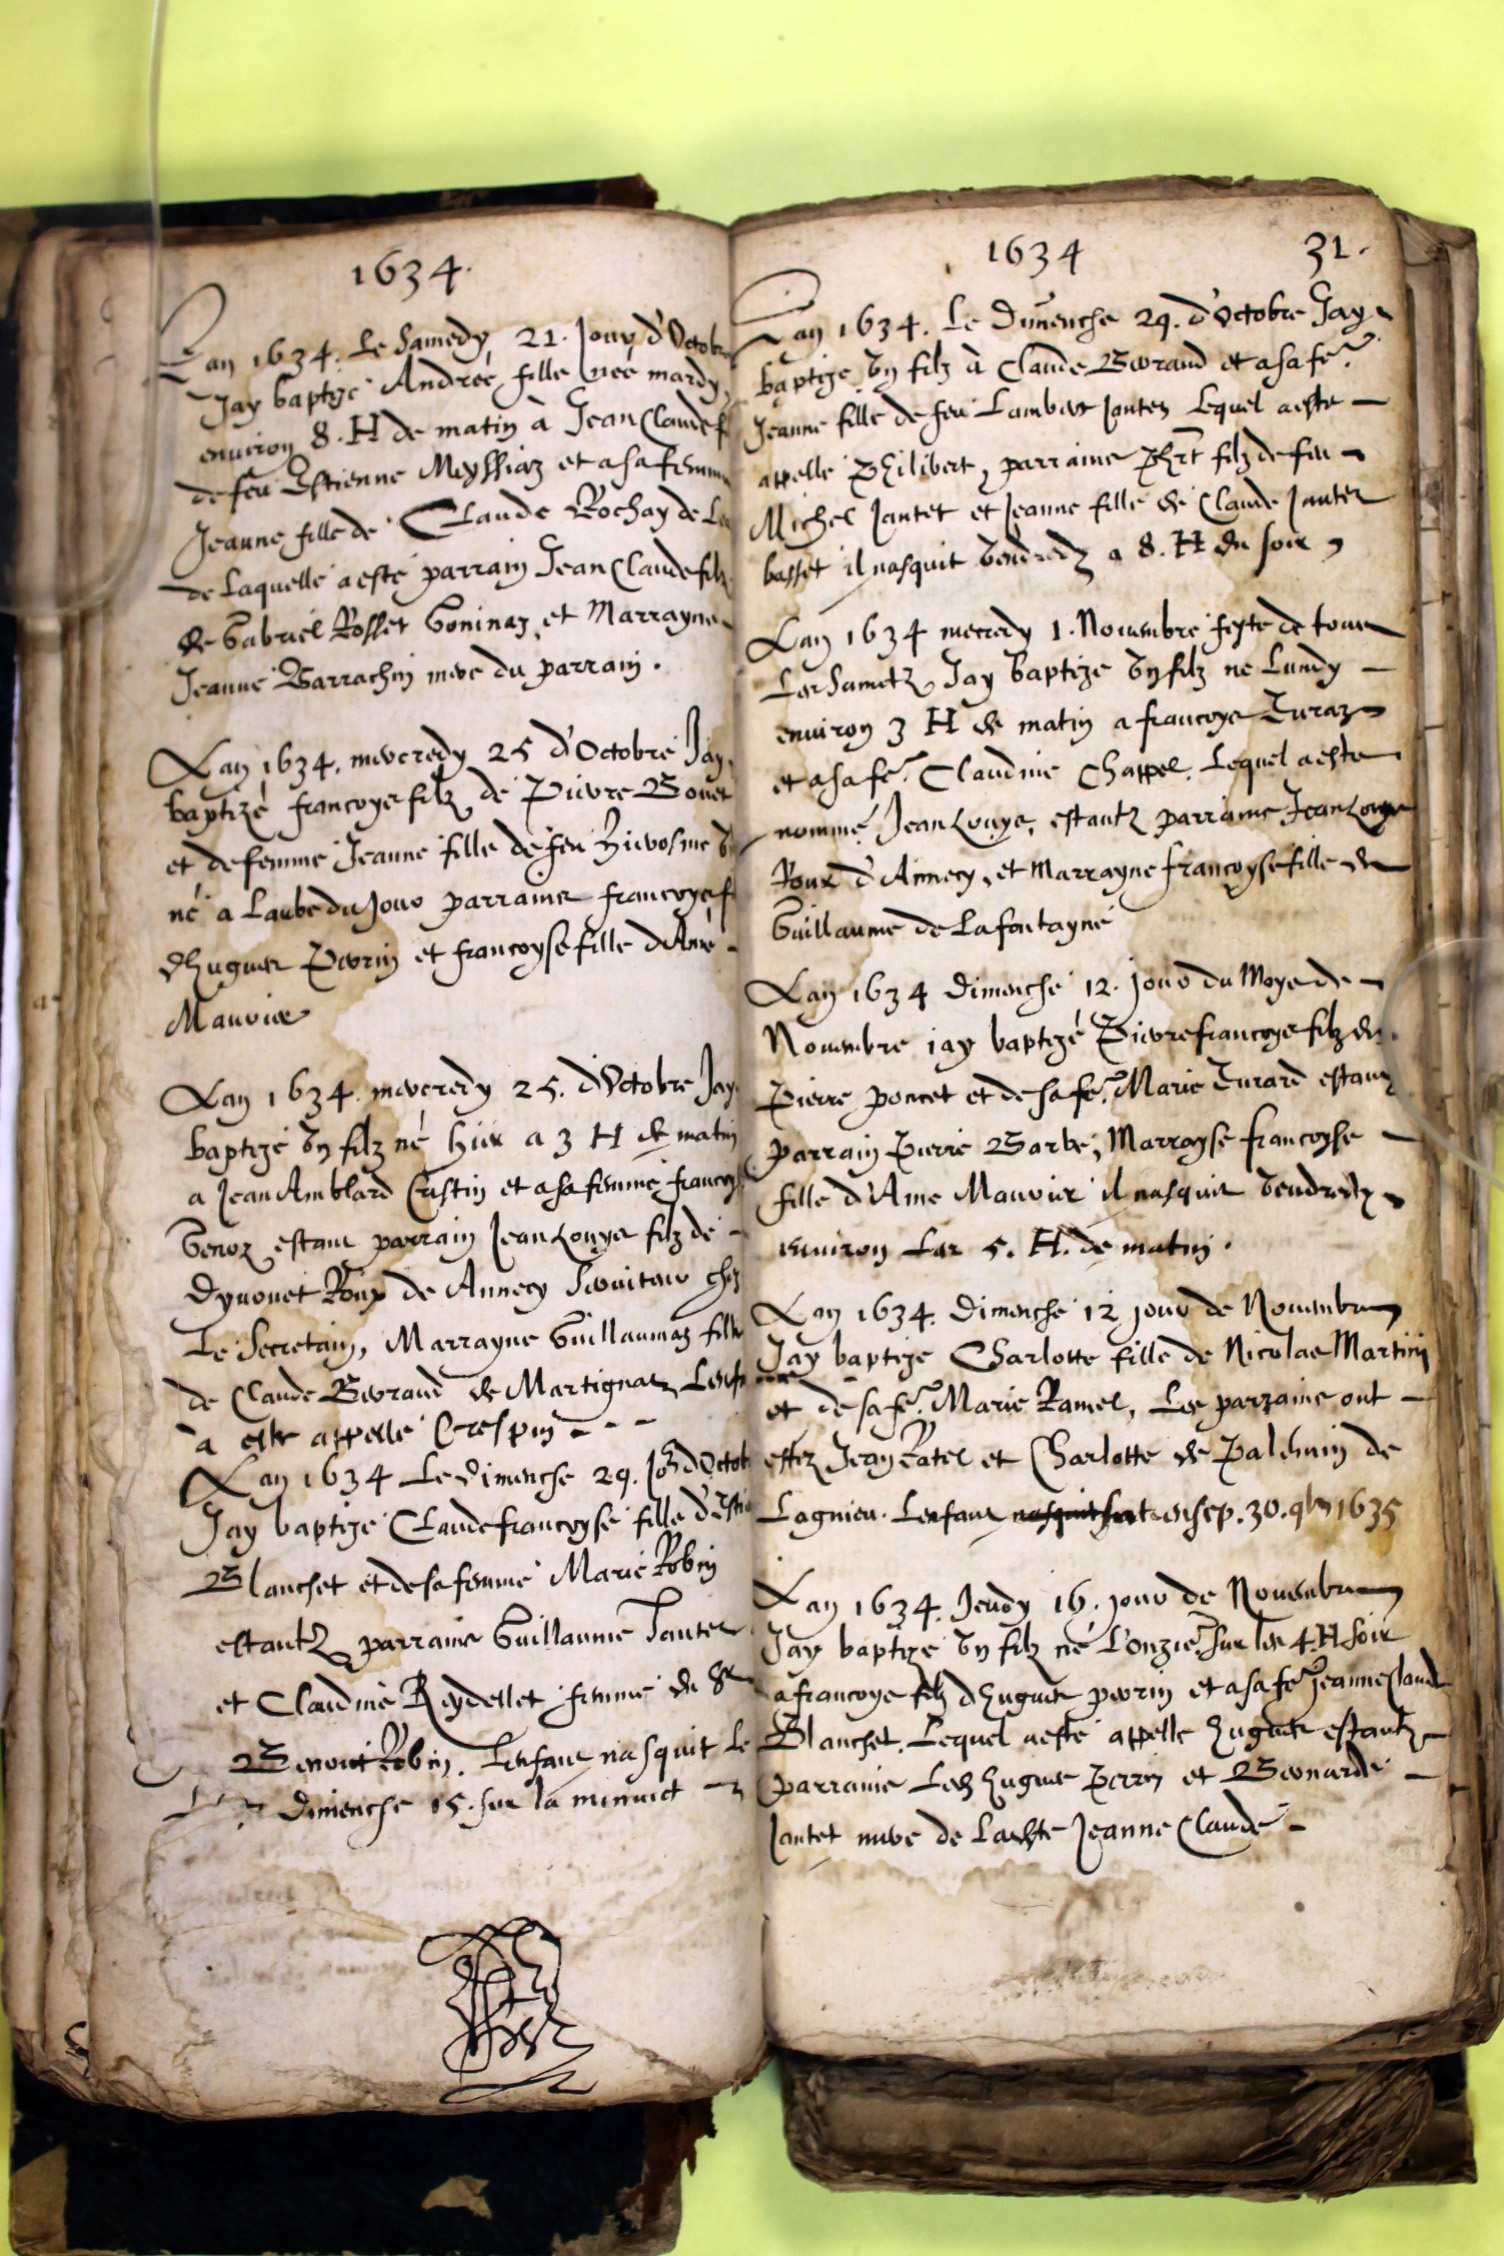 1634.
Lan 1634. Le Samedy 21. Jour d'Octobr
Jay baptizé Andreé fille neé mardy
enuiron 8. H de matin à Jean Claude f
de feu Estienne Meyssiaz et a sa femme
Jeanne fille de Claude Rochay de
de Laquelle a esté parrain Jean Claude filz
de Gabriel Rosset Goninaz et Marrayne
Jeanne Barrachin mere du parrain.
Lan 1634. mercredy 25 d'Octobre Jay
baptizé francoys filz de Pierre Bouet
et de femme Jeanne fille de feu Hierosme
né a Laube du Jour parrains francoys f
d'hugues Perrin et francoyse fille d'Ame
Mauvier
Lan 1634. mercredy 25. d'Octobre Jay
baptizé vn filz né hier a 3 H de matin
a Jean Amblard Crestin et a sa femme francoys
Genoz estant parrain Jean Louys filz de
Dynouet Roux de Annecy seruiteur chez
Le Secretain, Marrayne Guillaumaz fille
de Claude Beraud de Martignaz, Lenfa
a este appelle Crespin - - -
Lan 1634 Le dimenche 29. Jor d'Octob
Jay baptizé Claude francoyse fille d'Esti
Blanchet et de sa femme Marie Robin
estantz parrains Guillaume Jantet
et Claudine Reydellet femme de Sr
Benoit Robin. Lenfant nasquit le
dimenche 15. sur la minuict
1634
31.
Lan 1634. Le Dimenche 29. d'Octobre Jay
baptizé vn filz à Claude Beraud et a sa fe.
Jeanne fille de feu Lambert Jantet Lequel a este
appelle Philibert, parrains Phrt filz de feu
Michel Jantet et Jeanne fille de Claude Jantet
basset il nasquit vendredz a 8. H du soir
Lan 1634 mecredy 1. Nouembre feste de tous
Les Sainctz Jay baptizé vn filz ne Lundy
enuiron 3 H de matin a francoys Turaz
et a sa fe. Claudine Chappel. Lequel a este
nommé Jean Louys, estantz parrains Jean Louys
Roux d'Annecy, et Marrayne francoyse fille de
Guillaume de Lafontayne
Lan 1634 Dimenche 12. jour du Moys de
Nouembre iay baptizé Pierre francoys filz de
Pierre poncet et de sa fe. Marie Turard estant
parrain Pierre Barbe, Marrayse francoyse
fille d'Ame Mauvier il nasquit vendredz
enuiron Les 5. H. de matin.
Lan 1634. Dimenche 12 jour de Nouembre
Jay baptizé Charlotte fille de Nicolas Martin
et de sa fe. Marie Ramel, Les parrains ont
estez Jean Ratel et Charlotte de Palluin de
Lagnieu. Lenfant nasquit 30. 1635
Lan 1634. Jeudy 16. jour de Nouembre
Jay baptizé vn filz né L'onzie. sur les 4. H soir
a francoys filz d'hugues perrin et a sa fe. Jeanne Claude
Blanchet. Lequel a esté appelle hugues estantz
parrains Led. hugues Perrin et Bernarde
Jantet mere de Ladte Jeanne Claude